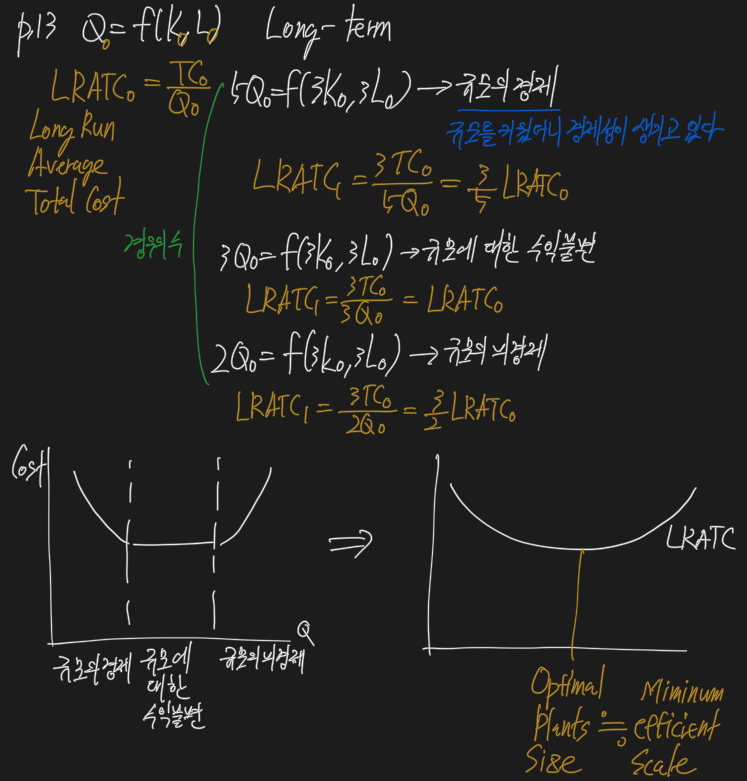 p.13 Q₀=f(K₀,L₀) Long-term
LRATC₀ = TC₀/Q₀
Long Run
Average
Total Cost
경우의 수
5Q₀=f(3K₀,3L₀) → 규모의 경제
규모를 키웠더니 경제성이 생기고 있다
LRATC₁ = 3TC₀/5Q₀ = 3/5 LRATC₀
3Q₀=f(3K₀,3L₀) → 규모에 대한 수익불변
LRATC₁ = 3TC₀/3Q₀ = LRATC₀
2Q₀=f(3K₀,3L₀) → 규모의 비경제
LRATC₁ = 3TC₀/2Q₀ = 3/2 LRATC₀
Cost
Q
규모의 경제
규모에
대한
수익불변
규모의 비경제
⇒
LRATC
Optimal
Plants
Size
≒
Miminum
efficient
Scale